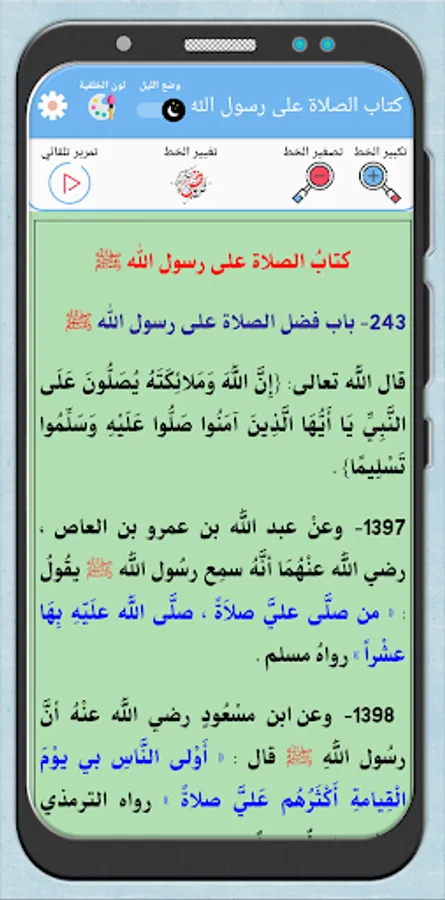 كتاب الصلاة على رسول الله
وضع الليل
لون الخلفية
تكبير الخط
تصغير الخط
تغيير الخط
تمرير تلقائي
كتابُ الصلاة على رسول الله ﷺ
243- باب فضل الصلاة على رسول الله ﷺ
قال الله تعالى: {إِنَّ اللَّهَ وَمَلائِكَتَهُ يُصَلُّونَ عَلَى
النَّبِيِّ يَا أَيُّهَا الَّذِينَ آمَنُوا صَلُّوا عَلَيْهِ وَسَلِّمُوا
تَسْلِيمًا} .
1397- وعنْ عبد الله بن عمرو بن العاص ،
رضي الله عنْهُمَا أنَّهُ سمِع رسُول الله ﷺ يقُولُ
: « من صلَّى عليَّ صلاَةً ، صلَّى الله علَيْهِ بِهَا
عشْراً » رواهُ مسلم .
1398- وعن ابن مسْعُودٍ رضي الله عنْهُ أنَّ
رسُول اللَّهِ ﷺ قال : « أَوْلى النَّاسِ بي يوْمَ
الْقِيامةِ أَكْثَرُهُم عَليَّ صلاةً » رواه الترمذي